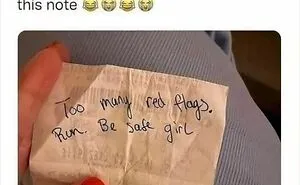 this note 😂😭😂😭
Too many red flags.
Run. Be safe girl